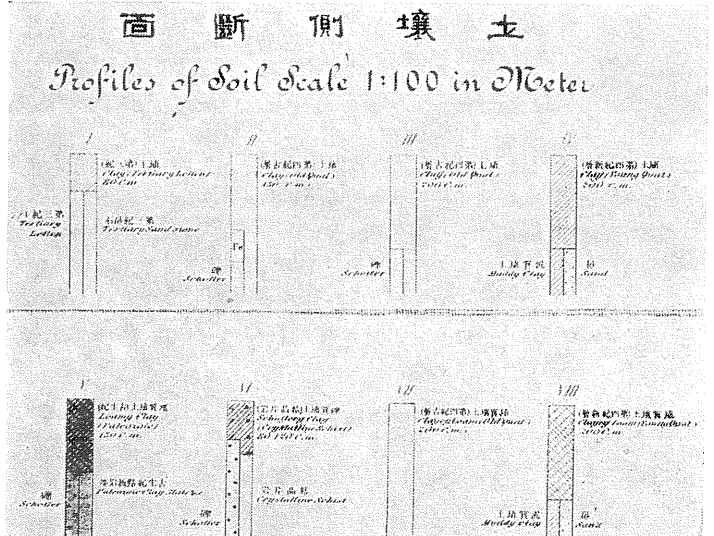 面斷側壤土
Profiles of Soil Scale 1:100 in Meter
I
II
III
(紀三第)土埴
Clay(Tertiary Letten)
80 C.m.
Tertiary
Letten
石砂紀三第
Tertiary Sandstone
(層古紀四第)土埴
Clay(old Quat.)
150 C.m.
Fe
礫
Schotter
(層古紀四第)土埴
Clay(Old Quat.)
200 C.m.
礫
Schotter
(層新紀四第)土埴
Clay(Young Quat.)
200 C.m.
土埴質泥
Muddy Clay
砂
Sand
V
VI
VII
VIII
(紀生古)土埴質壚
Loamy Clay
(Paleozoic)
150 C.m.
岩板粘紀生古
Paleozoic Clay slates
礫
Schotter
(岩片晶結)土埴質礫
Schottery Clay
(Crystalline Schist)
80-120 C.m.
岩片晶結
Crystalline Schist
礫
Schotter
(層古紀四第)土壚質埴
Clayey Loam(Old Quat.)
200 C.m.
(層新紀四第)土壚質埴
Clayey Loam(Young Quat.)
200 C.m.
土埴質泥
Muddy Clay
砂
Sand